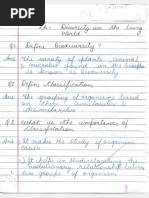 Ch- Diversity in the living
World
Q1 Define Biodiversity?
Ans The variety of plants, animal
& microbes found on the earth
is known as biodiversity
Q2 Define Classification
Ans The grouping of organisms based
on their similarities &
dissimilarities
Q3 What is the importance of
classification
Ans 1) It makes the study of organism
easier
2) It helps in understanding the
evolutionary relationship between
two groups of organism